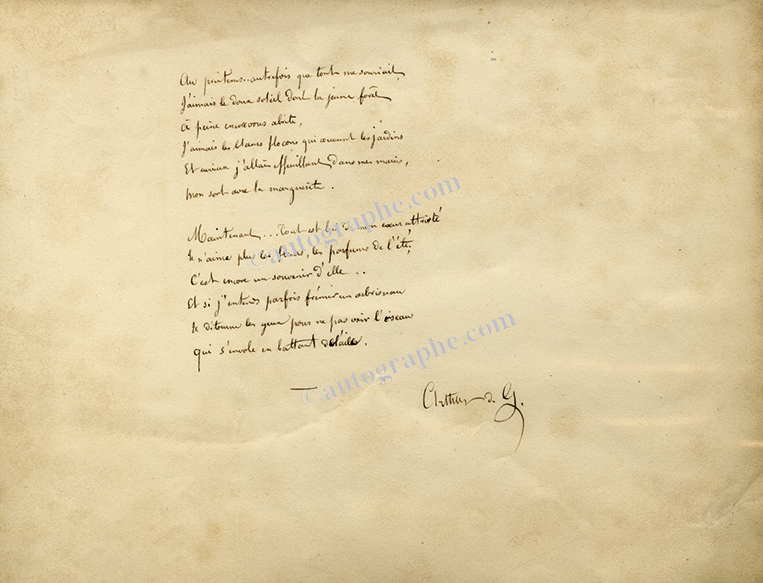 Au printems.. autrefois que tout me souriait,
J'aimais le doux soleil dont la jeune forêt
À peine encore vous abrite,
J'aimais les blancs flocons qui couvrent les jardins
Et curieux j'allais effeuillant dans mes mains,
Mon sort avec la marguerite.
Maintenant... Tout est de mon cœur attristé
Je n'aime plus les fleurs, les parfums de l'été,
C'est encore un souvenir d'elle...
Et si j'entends parfois frémir un arbrisseau
Je détourne les yeux pour ne pas voir l'oiseau
Qui s'envole en battant de l'aile.
Arthur de G.
©autographe.com
©autographe.com